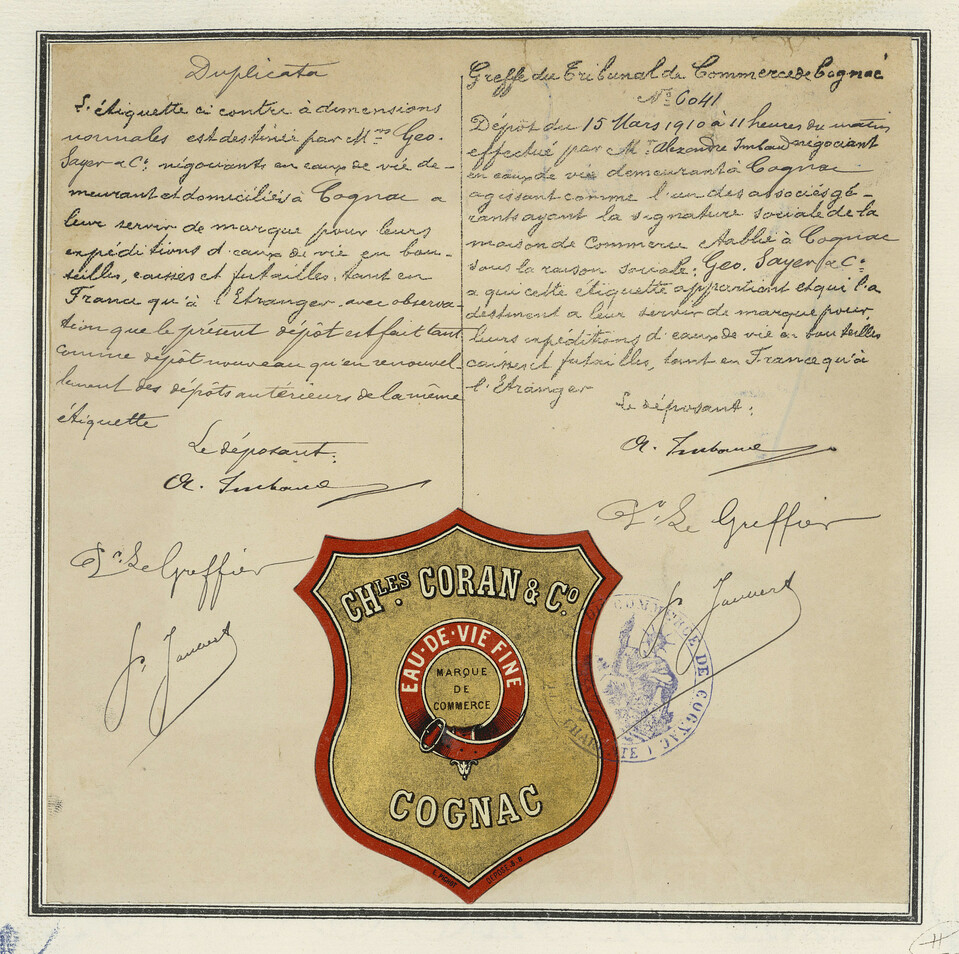 Duplicata
L'étiquette ci contre à dimensions
normales est destinée par M.rs Geo.
Sayer & Cº. négociants en eaux de vie de-
meurant et domiciliés à Cognac a
leur servir de marque pour leurs
expéditions d'eaux de vie en bou-
teilles, caisses et futailles, tant en
France qu'à l'Etranger avec observa-
tion que le présent dépôt est fait tant
comme dépôt nouveau qu'en renouvel-
lement des dépôts antérieurs de la même
étiquette
Le déposant:
A. Imbaud
Le Greffier
Greffe du Tribunal de Commerce de Cognac
Nº 6041
Dépôt du 15 Mars 1910 à 11 heures du matin
effectué par M.r Alexandre Imbaud négociant
en eaux de vie demeurant à Cognac
agissant comme l'un des associés gé-
rants ayant la signature sociale de la
maison de Commerce établie à Cognac
sous la raison sociale: Geo. Sayer & Cº.
a qui cette étiquette appartient et qui l'a
destinent a leur servir de marque pour
leurs expéditions d'eaux de vie en bouteilles
caisses et futailles, tant en France qu'à
l'Etranger
Le déposant:
A. Imbaud
Le Greffier
CHLES. CORAN & CO.
EAU-DE-VIE FINE
MARQUE
DE
COMMERCE
COGNAC
DÉPOSÉ
DE COMMERCE DE COGNAC